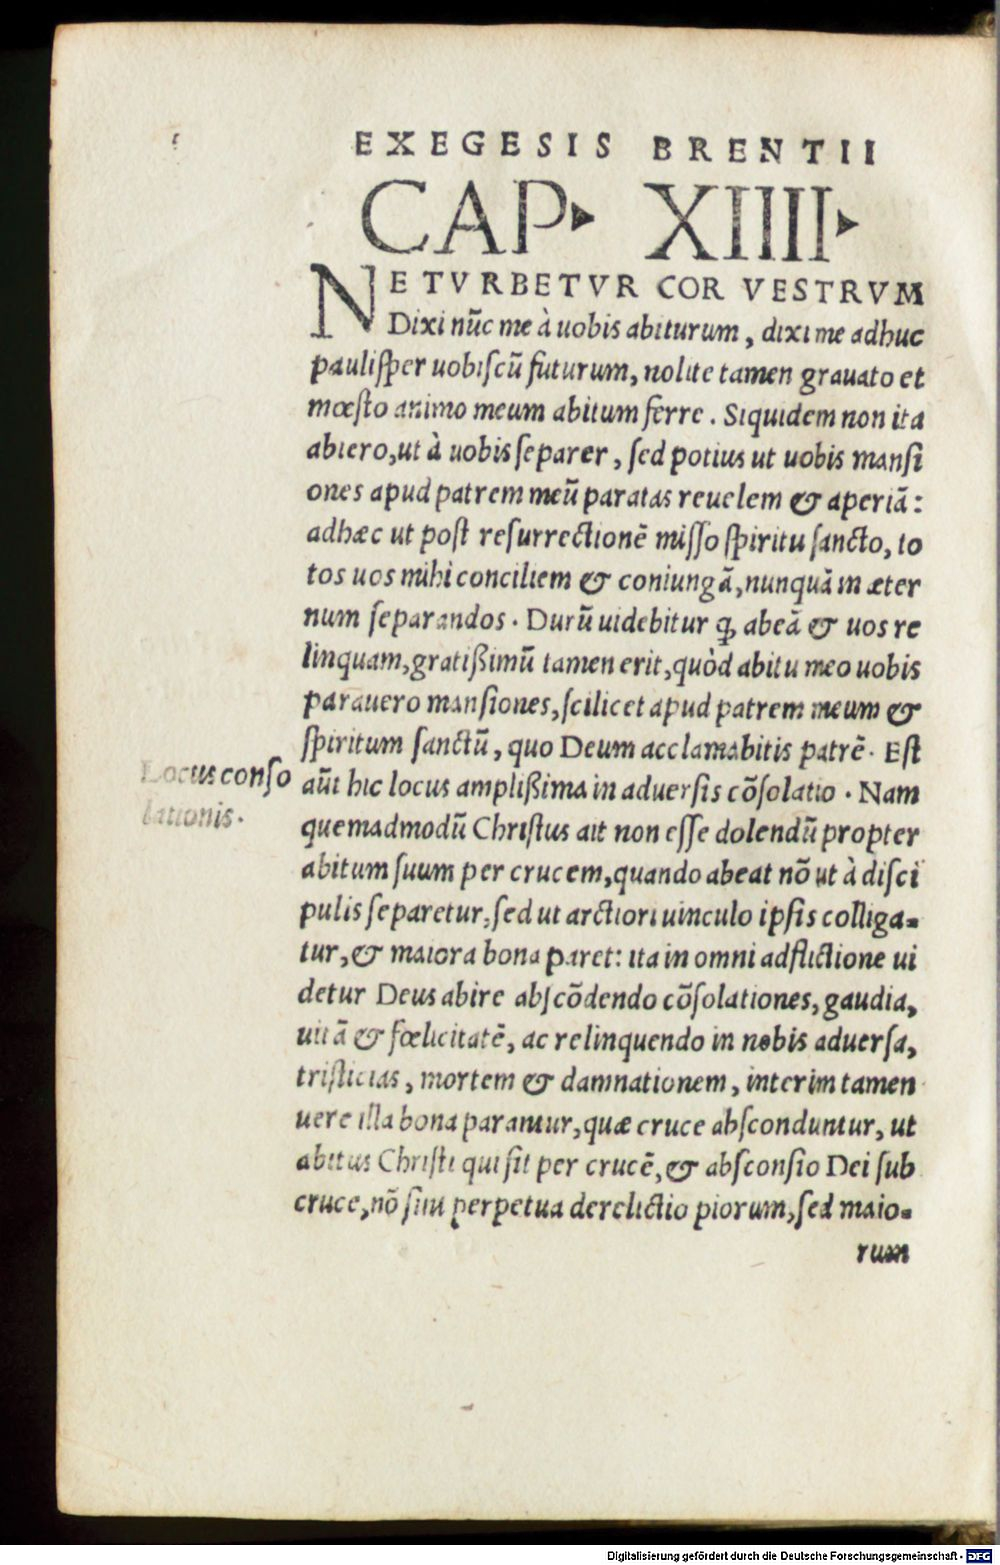 EXEGESIS BRENTII
CAP. XIIII.
NE TVRBETVR COR VESTRVM
Dixi nũc me à uobis abiturum, dixi me adhuc
paulisper uobiscũ futurum, nolite tamen grauato et
mœsto animo meum abitum ferre. Siquidem non ita
abiero, ut à uobis separer, sed potius ut uobis mansi
ones apud patrem meũ paratas reuelem & aperiã:
adhæc ut post resurrectionẽ misso spiritu sancto, to
tos uos mihi conciliem & coniungã, nunquã in æter
num separandos. Durũ uidebitur ꝙ abeã & uos re
linquam, gratißimũ tamen erit, quòd abitu meo uobis
parauero mansiones, scilicet apud patrem meum &
spiritum sanctũ, quo Deum acclamabitis patrẽ. Est
Locus conso
lationis.
aũt hic locus amplißima in aduersis cõsolatio. Nam
quemadmodũ Christus ait non esse dolendũ propter
abitum suum per crucem, quando abeat nõ ut à disci
pulis separetur, sed ut arctiori uinculo ipsis colliga-
tur, & maiora bona paret: ita in omni adflictione ui
detur Deus abire abscõdendo cõsolationes, gaudia,
uitã & fœlicitatẽ, ac relinquendo in nobis aduersa,
tristicias, mortem & damnationem, interim tamen
uere illa bona parantur, quæ cruce absconduntur, ut
abitus Christi qui fit per crucẽ, & absconsio Dei sub
cruce, nõ sint perpetua derelictio piorum, sed maio-
rum
Digitalisierung gefördert durch die Deutsche Forschungsgemeinschaft - DFG